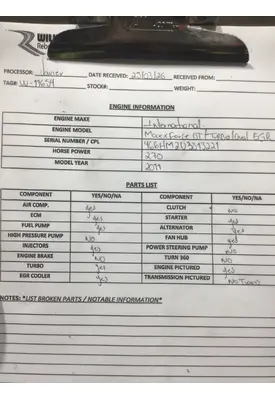 R WIL
Reb
PROCESSOR: Javier DATE RECEIVED: 25/03/26 RECEIVED FROM:
TAG#: STOCK#: WEIGHT:
ENGINE INFORMATION
ENGINE MAKE International
ENGINE MODEL MaxxForce DT / EGR
SERIAL NUMBER / CPL
HORSE POWER 270
MODEL YEAR 2011
PARTS LIST
COMPONENT YES/NO/NA COMPONENT YES/NO/NA
AIR COMP. yes CLUTCH No
ECM yes STARTER yes
FUEL PUMP yes ALTERNATOR yes
HIGH PRESSURE PUMP NO FAN HUB yes
INJECTORS yes POWER STEERING PUMP No
ENGINE BRAKE NO TURN 360 NO
TURBO yes ENGINE PICTURED yes
EGR COOLER yes TRANSMISSION PICTURED No Trans
NOTES: *LIST BROKEN PARTS / NOTABLE INFORMATION*